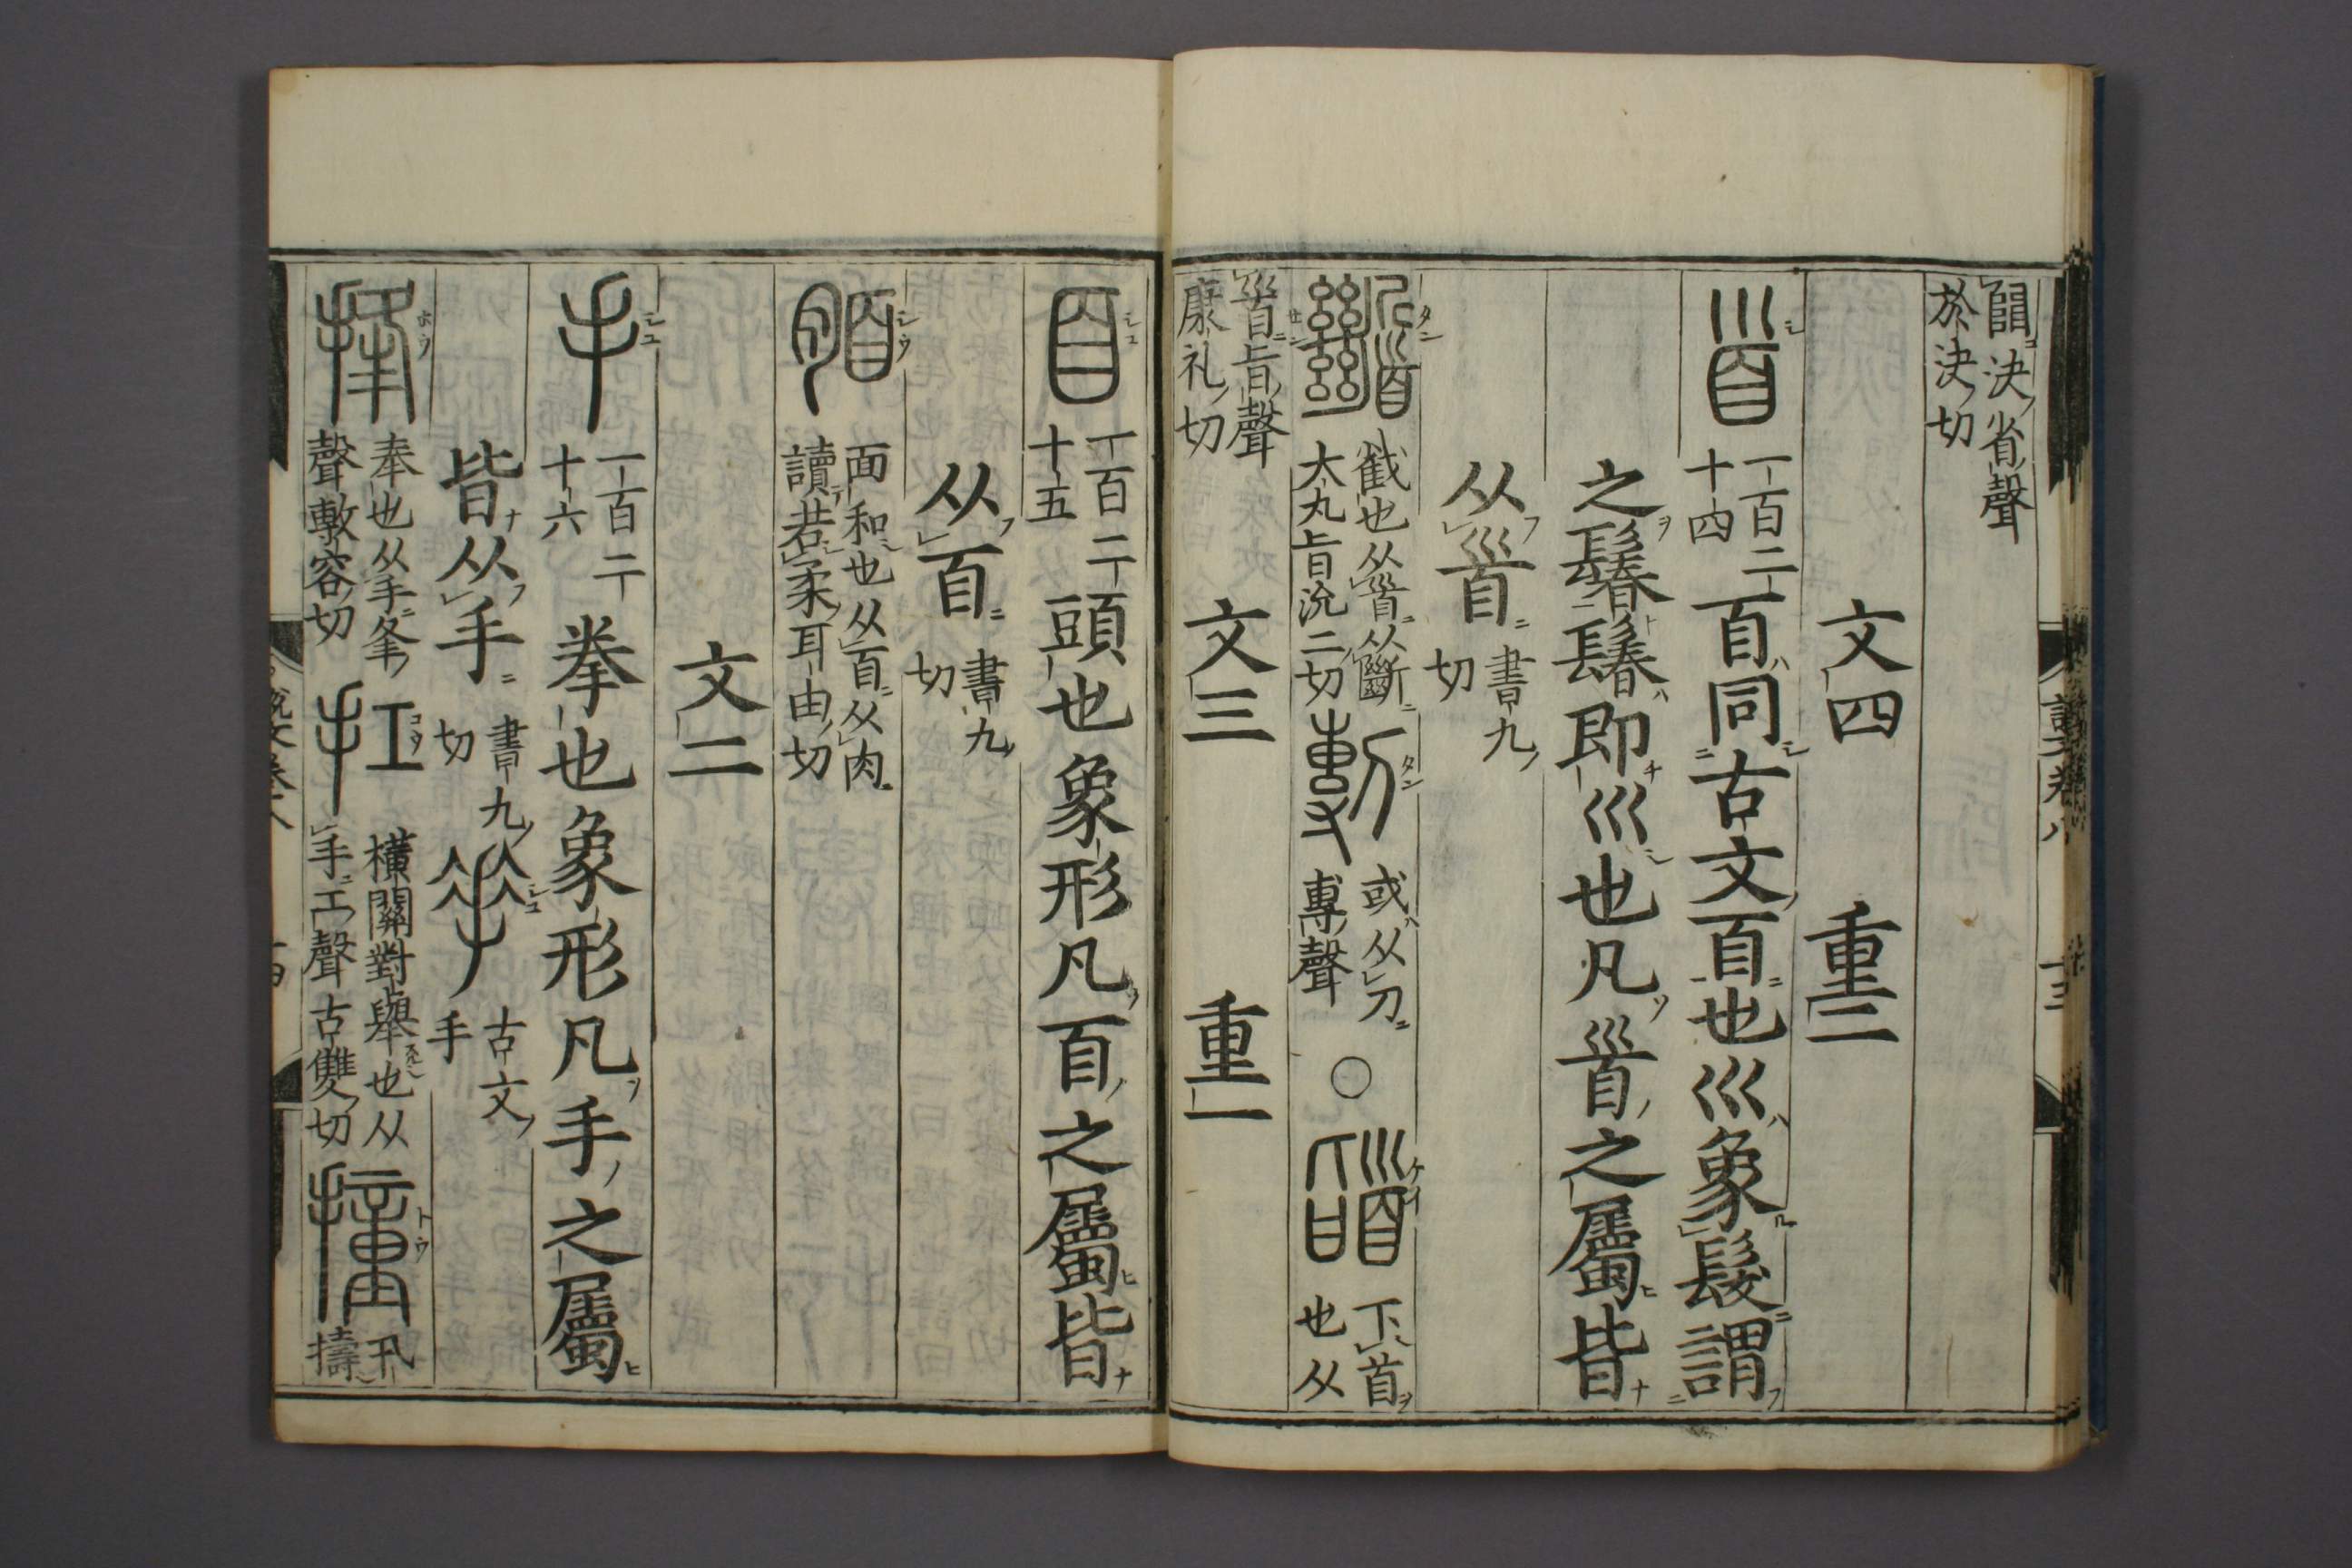 決省聲
於決切
文四　重二
一百二十四
𦣻同古文𦣻也巛象髮謂
之鬊鬊即巛也凡𩠐之屬皆
从𩠐書九切
截也从𩠐从斷
大丸旨沇二切
或从刀
專聲
○
下首也从
𩠐旨聲
康礼切
文三　重一
一百二十五
頭也象形凡𦣻之屬皆
从𦣻書九切
面和也从𦣻从肉
讀若柔耳由切
文二
手
一百二十六
拳也象形凡手之屬
皆从手書九切
古文手
奉也从手夆
聲敷容切
扛
橫關對舉也从
手工聲古雙切
撞
卂擣